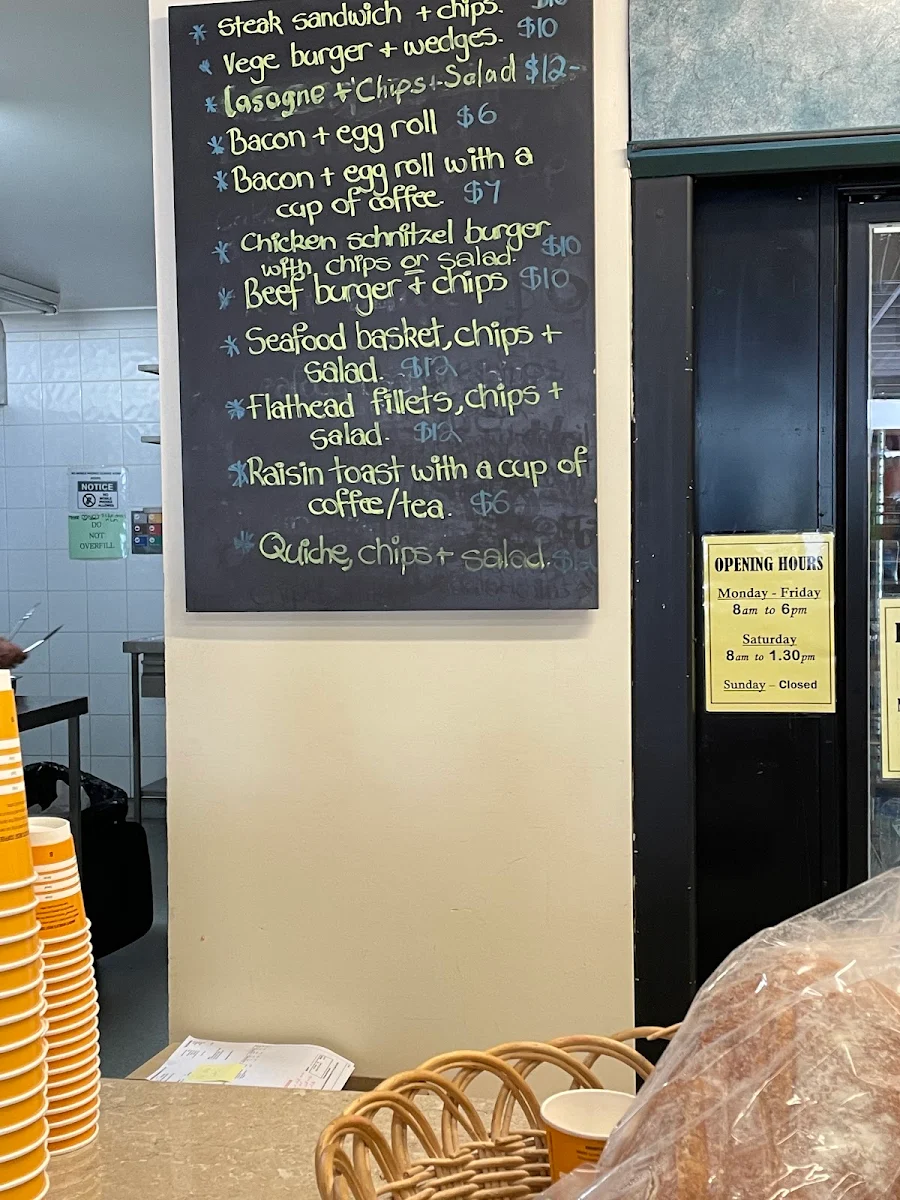 * Steak sandwich + chips. $10
* Vege burger + wedges. $10
* Lasagne + Chips + Salad $12-
* Bacon + egg roll $6
* Bacon + egg roll with a
cup of coffee. $7
* Chicken schnitzel burger
with chips or salad. $10
* Beef burger + chips $10
* Seafood basket, chips +
salad. $12
* Flathead fillets, chips +
salad. $12
* Raisin toast with a cup of
coffee/tea. $6
* Quiche, chips + salad.
NOTICE
DO
NOT
OVERFILL
OPENING HOURS
Monday - Friday
8am to 6pm
Saturday
8am to 1.30pm
Sunday – Closed